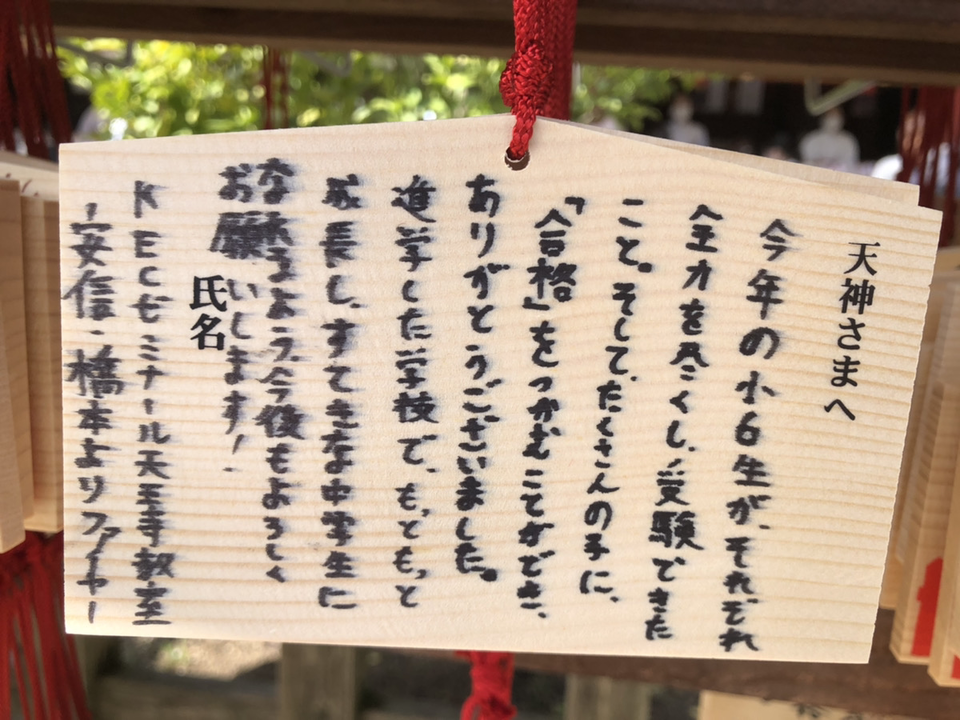 天神さまへ
今年の小6生が、それぞれ
全力を尽くし、受験できた
こと。そして、たくさんの子に、
「合格」をつかむことができ、
ありがとうございました。
進学した学校で、もっともっと
成長し、すてきな中学生に
なれるよう、今後もよろしく
お願いします!
氏名
KECゼミナール天王寺教室
安信・橋本よりファイヤー